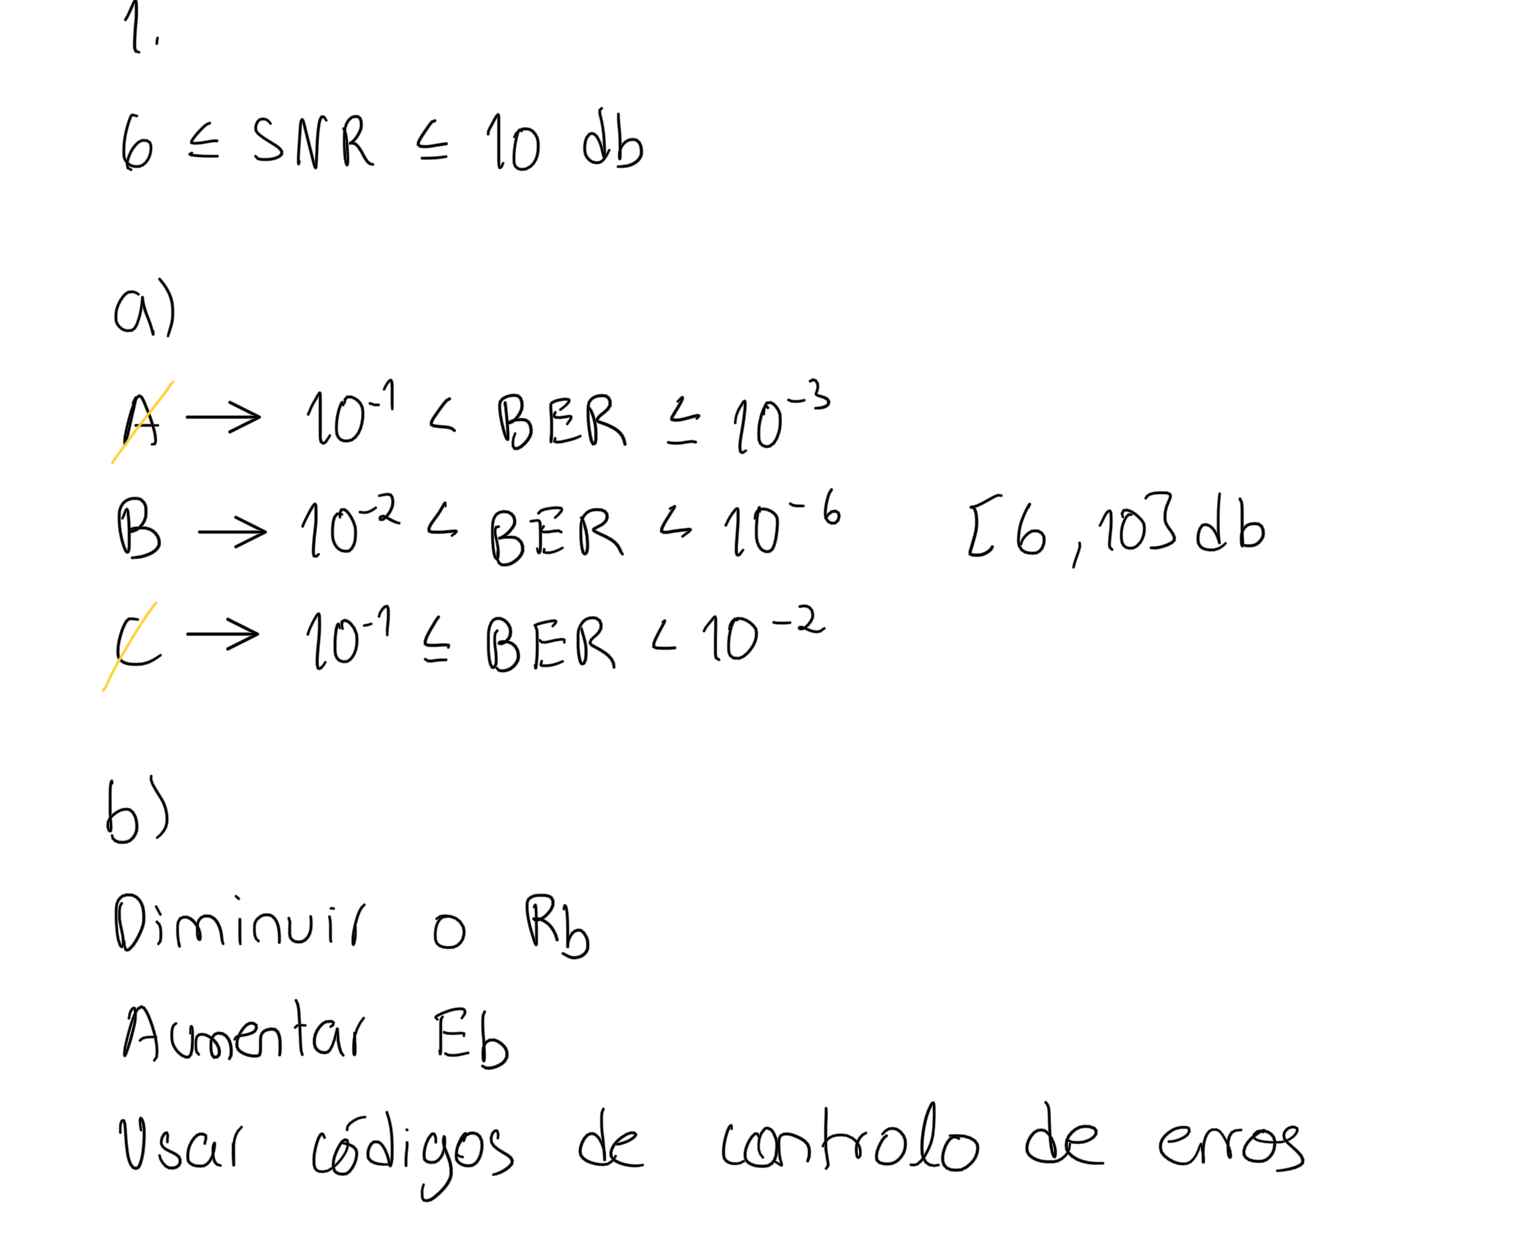 1.
6 ≤ SNR ≤ 10 db
a)
A → 10⁻¹ < BER ≤ 10⁻³
B → 10⁻² < BER < 10⁻⁶ [6,10] db
C → 10⁻¹ ≤ BER < 10⁻²
b)
Diminuir o Rb
Aumentar Eb
Usar códigos de controlo de erros